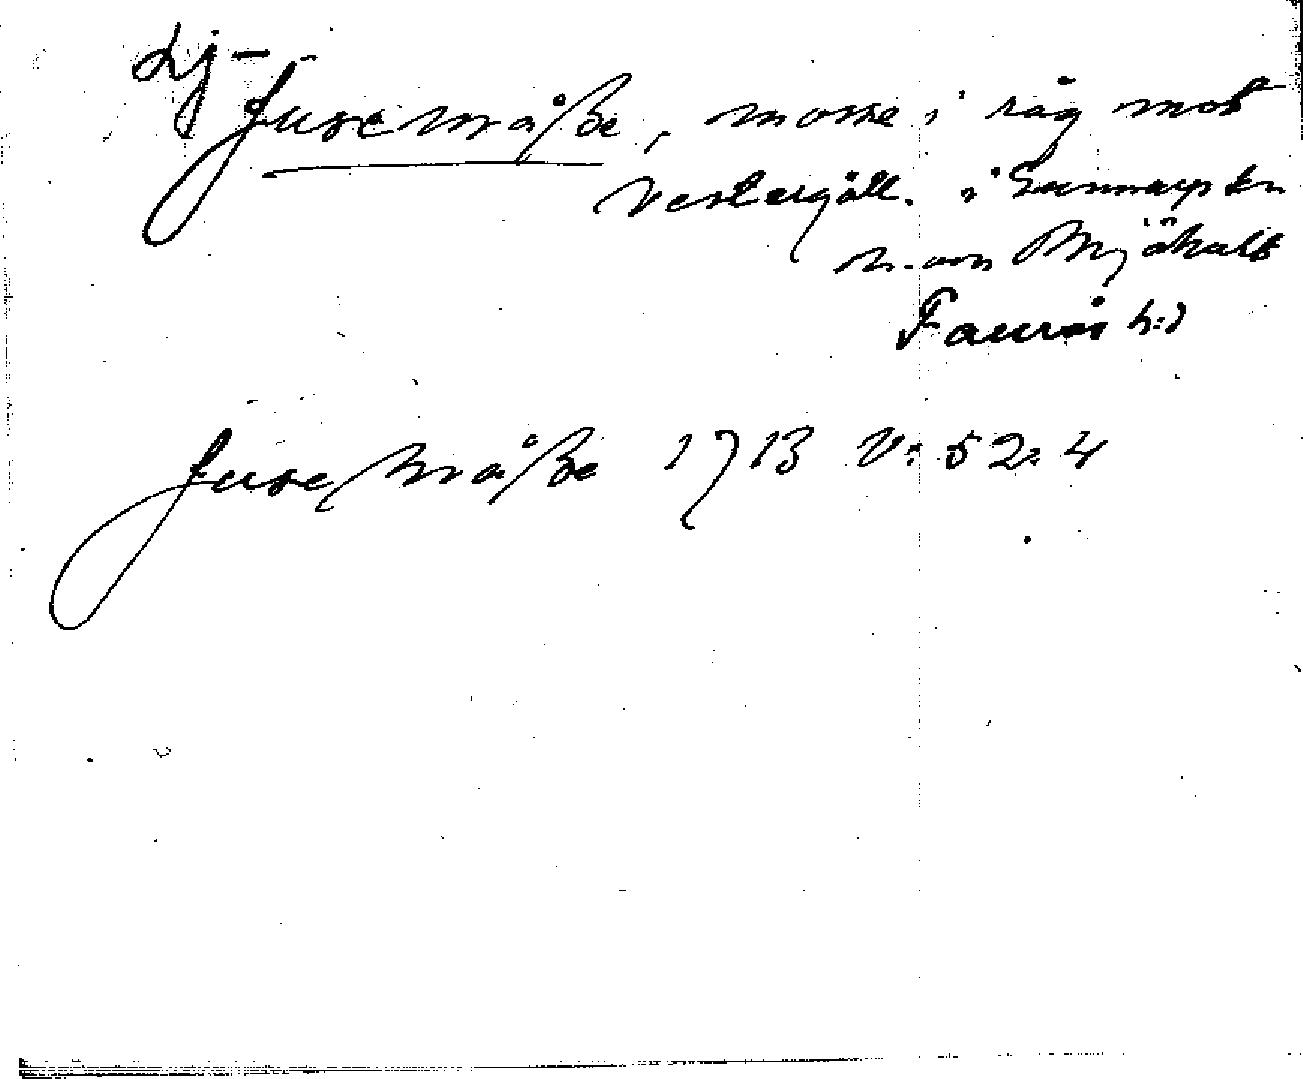 Lj-
Jusemåße, mosse i råg mot
Vestergötl. i Gunnarp sn
n. om Mjöhult
Faurås h:d
Juse måße 1713 V: 52: 4